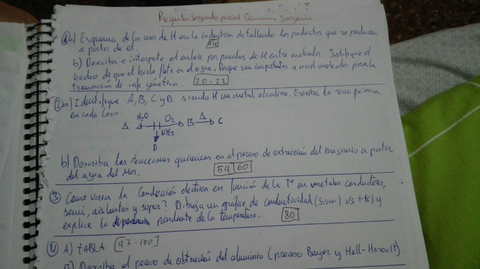 Preguntas segundo parcial Química Inorgánica
① a) Esquema de los usos de H en la industria detallando los productos que se producen
a partir de él.
b) Describa e interprete el enlace por puentes de H entre moléculas. Justifique el
hecho de que el hielo flote en el agua. Porque son importantes a nivel molecular para la
transmisión de info genética. 20-23
② a) Identifique A, B, C y D siendo M un metal alcalino. Escriba la reac química
en cada caso
Δ H2O O2 B Δ C
NH3
D
b) Describa las reacciones químicas en el proceso de extracción del magnesio a partir
del agua del mar. 59 60
③ Como varía la conducción eléctrica en función de la Tº en metales conductores,
semi, aislantes y super? Dibuja un grafico de conductividad (S/cm) vs t(K) y
explica la dependencia pendiente de la temperatura. 80
④ A) TABLA 97-100
B) Describa el proceso de obtención del aluminio (proceso Bayer y Hall-Heroult).